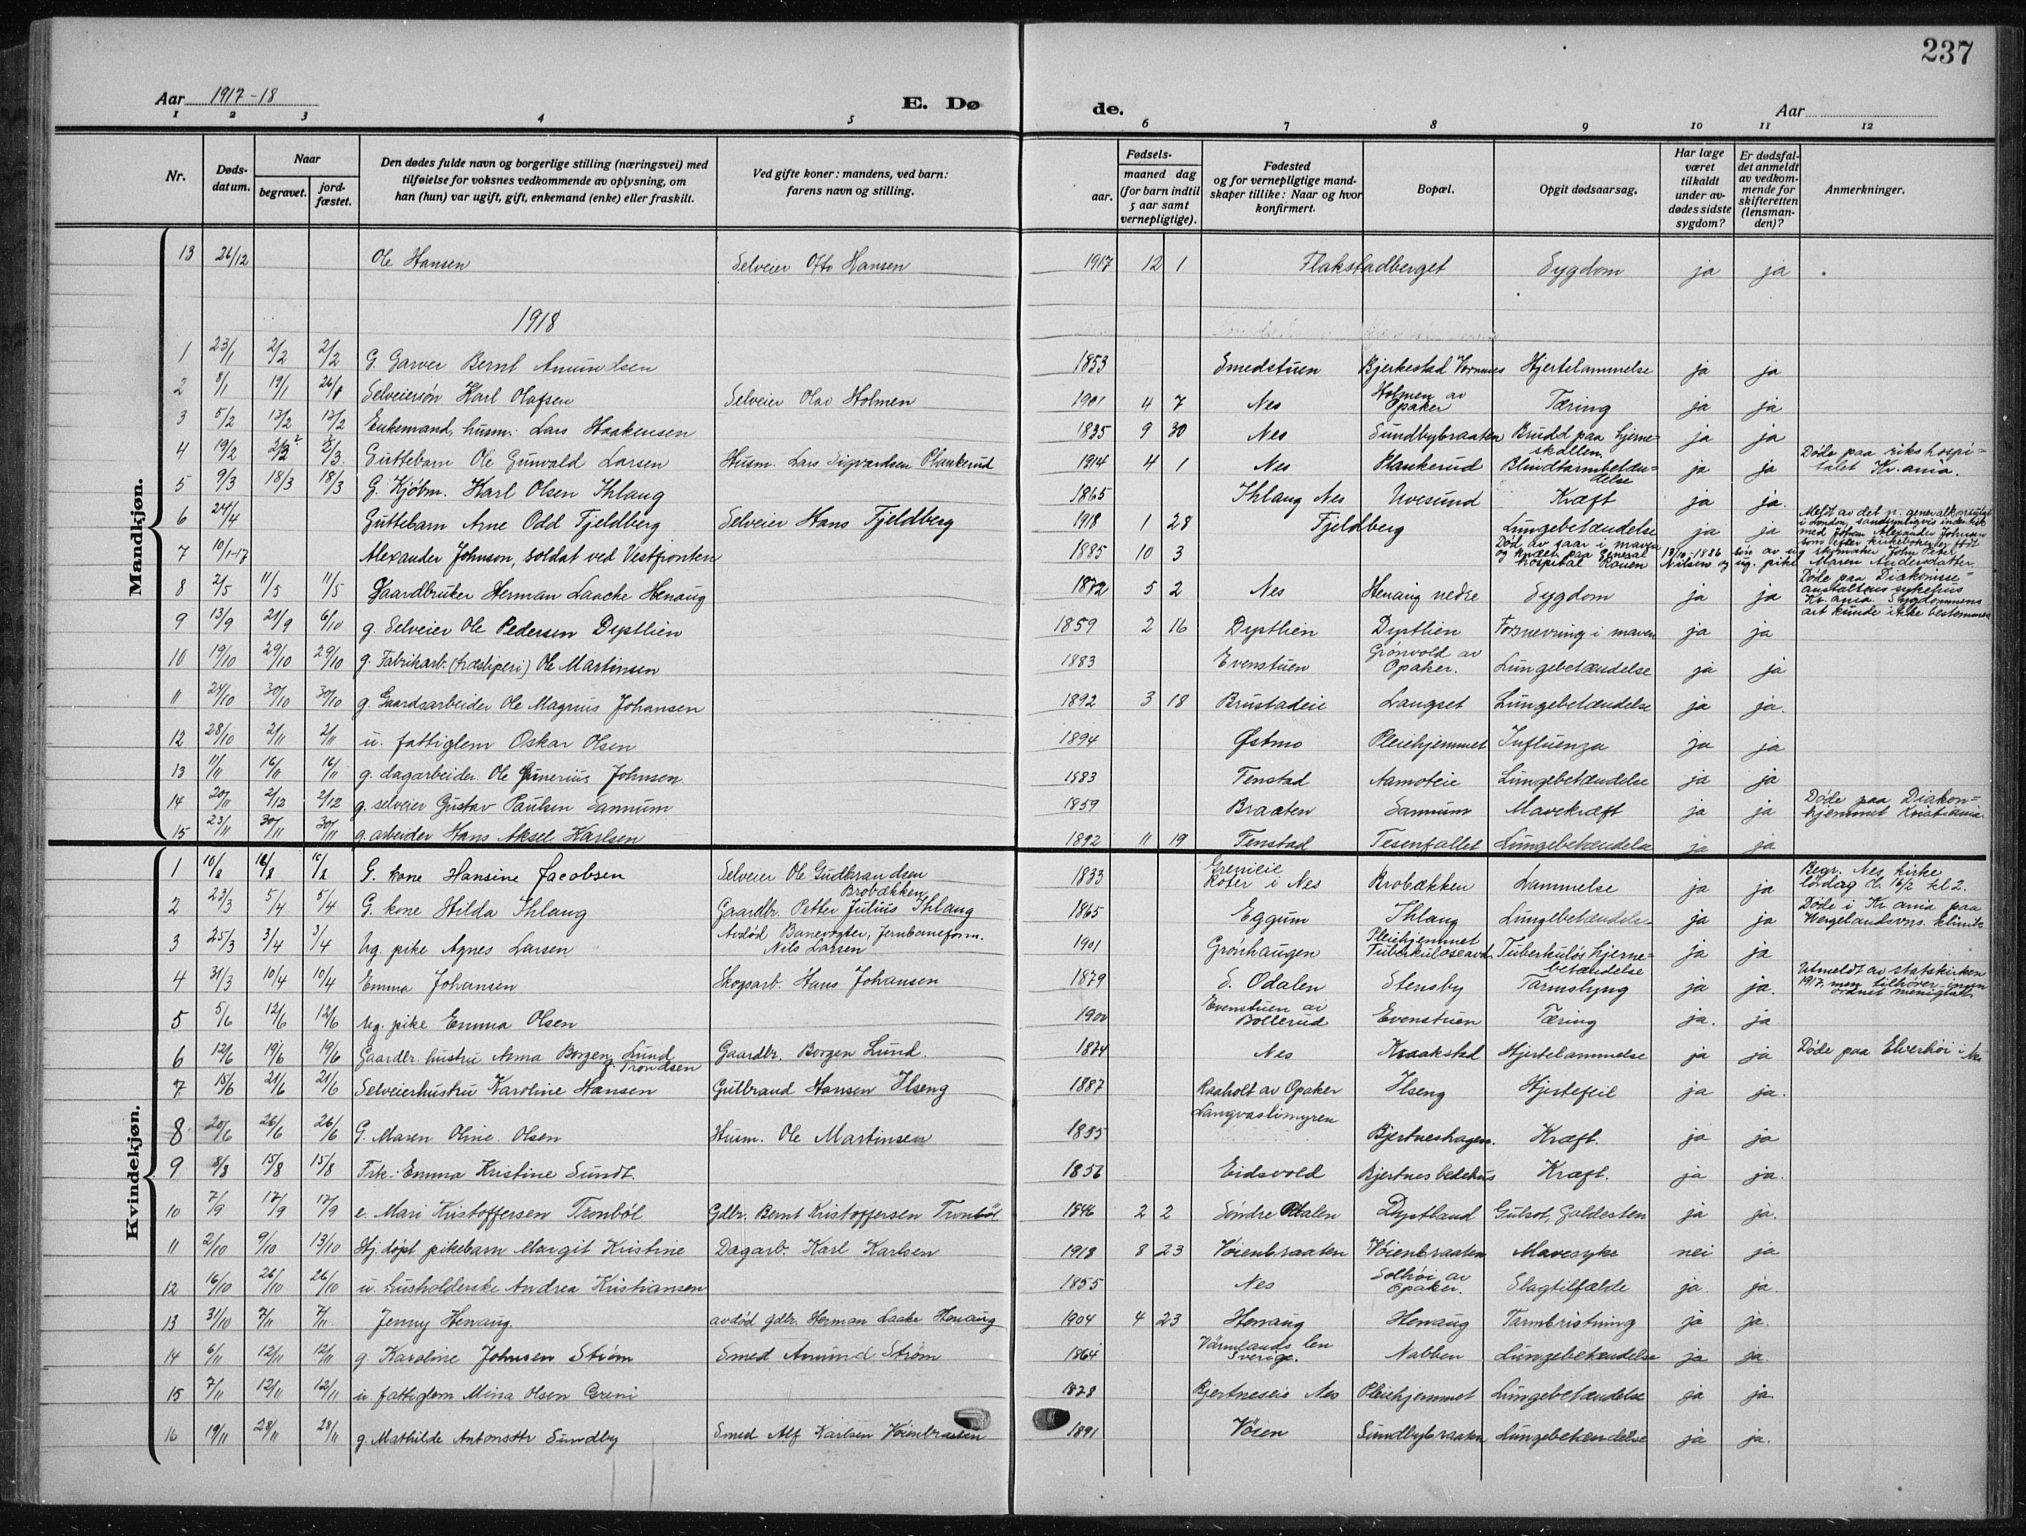 237
Aar 1917-18
E. Dø
de.
Aar
1 2 3 4 5 6 7 8 9 10 11 12
Nr.
Døds-
datum.
Naar
begravet.
jord-
fæstet.
Den dødes fulde navn og borgerlige stilling (næringsvei) med
tilføielse for voksnes vedkommende av oplysning, om
han (hun) var ugift, gift, enkemand (enke) eller fraskilt.
Ved gifte koner: mandens, ved barn:
farens navn og stilling.
Fødsels-
aar.
maaned dag
(for barn indtil
5 aar samt
vernepligtige).
Fødested
og for vernepligtige mand-
skaper tillike: Naar og hvor
konfirmert.
Bopæl.
Opgit dødsaarsag.
Har læge
været
tilkaldt
under av-
dødes sidste
sygdom?
Er dødsfal-
det anmeldt
av vedkom-
mende for
skifteretten
(lensman-
den)?
Anmerkninger.
Mandkjøn.
13 26/12 Ole Hansen Selveier Otto Hansen 1917 12 1 Flakstadberget Sygdom ja ja
1918
1 23/1 2/2 2/2 G. Garver Bernt Amundsen 1853 Smedstuen Bjerkestad Vormnes Hjertelammelse ja ja
2 8/1 19/1 26/1 Selveiersøn Karl Olafsen Selveier Olav Holmen 1901 4 7 Nes Holmen av Opaker Tæring ja ja
3 5/2 12/2 12/2 Enkemand, husm. Lars Haakensen 1835 9 30 Nes Sundbybraaten Brudd paa hjerne-skallen ja ja
4 19/2 2/3 2/3 Guttebarn Ole Gunvald Larsen Husm. Lars Sigvardsen Plankerud 1914 4 1 Nes Plankerud Blindtarmbetæn-delse ja ja Døde paa rikshospi-talet Kr.ania.
5 9/3 18/3 18/3 G. Kjøbm. Karl Olsen Ihlang 1865 Ihlang Nes Uvesund Kræft ja ja.
6 24/4 Guttebarn Arne Odd Fjeldberg Selveier Hans Fjeldberg 1918 1 28 Fjeldberg Lungebetændelse ja ja
7 10/1-17 Alexander Johnson, soldat ved Vestfronten 1885 10 3 Død av saar i maven og knæet paa General hospital Rouen Meldt av det n. generalkonsulat i London, sandsynligvis identisk med Johan Alexander Johnsen som efter kirkeboken er født 18/10-1886 søn av ug. skomaker John Peter Nilsen og ug. pike Maren Andersdatter
8 2/5 11/5 11/5 Gaardbruker Herman Laache Henaug 1872 5 2 Nes Henaug nedre Sygdom ja ja Døde paa Diakonisse-anstaltens sykehus Kr.ania. Sygdommens art kunde ikke bestemmes
9 13/9 21/9 6/10 g. Selveier Ole Pedersen Dystlien 1859 2 16 Dystlien Dystlien Forsnevring i maven ja ja
10 19/10 29/10 29/10 g. Fabrikarb. (træsliperi) Ole Martinsen 1883 Evenstuen Grønvold av Opaker. Lungebetændelse ja ja
11 24/10 30/10 30/10 g. Gaardsarbeider Ole Magnus Johansen 1892 3 18 Brustadeie Langset Lungebetændelse ja ja.
12 28/10 2/11 2/11 u. fattiglem Oskar Olsen 1894 Østmo Pleiehjemmet Influenza ja ja
13 11/11 16/11 16/11 g. dagarbeider. Ole Gunerius Johnsen 1883 Fenstad Aamoteie Lungebetændelse ja ja
14 20/11 2/12 2/12 g. selveier Gustav Paulsen Sannum 1859 Braaten Sannum Mavekræft ja ja Døde paa Diakon-hjemmet Kristiania
15 23/11 30/11 30/11 g. arbeider Hans Aksel Karlsen 1892 11 19 Fenstad Tesenfallet Lungebetændelse ja ja
Kvindekjøn.
1 10/2 16/2 16/2 G. kone Hansine Jacobsen Selveier Ole Gudbrandsen Brobækken 1833 Grenieie Roter i Nes Brobækken Lammelse ja ja Begr. Nes kirke lørdag d. 16/2 kl 2.
2 23/3 5/4 5/4 G. kone Hilda Ihlang Gaardbr. Petter Julius Ihlang 1865 Eggum Ihlang Lungebetændelse ja ja Døde i Kr.ania paa Wergelandsvns. klinik
3 25/3 3/4 3/4 Ug. pike Agnes Larsen Avdød Banevogter, Jernbaneform. Nils Larsen 1901 Grønhaugen Pleiehjemmet Tuberkuloseavd. Tuberkuløs hjerne-betændelse ja ja
4 31/3 10/4 10/4 Emma Johansen Skogsarb. Hans Johansen 1879 S. Odalen Stensby Tarmslyng ja ja. Utmeldt av statskirken 1917, men tilhører ingen ordnet menighet
5 5/6 12/6 12/6 Ug. pike Emma Olsen 1900 Evenstuen av Bollerud Evenstuen Tæring ja. ja.
6 12/6 19/6 19/6 Gaardbr. hustru Anna Borgen Lund f. Trondsen Gaardbr. Borgen Lund. 1874 Nes Kraakstad Hjertelammelse ja ja Døde paa Elverhøi i Nes
7 15/6 21/6 21/6 Selveierhustru Karoline Hansen Gulbrand Hansen Ilseng 1887 Raaholt av Opaker Ilseng Hjertefeil ja ja.
8 20/6 26/6 26/6 G. Maren Oline Olsen Husm. Ole Martinsen 1855 Langvaslimyren Bjertneshagen. Kræft. ja ja
9 8/8 15/8 15/8 Frk. Emma Kristine Sundt. 1856 Eidsvold Bjertnes bedehus Kræft. ja ja.
10 7/9 17/9 17/9 e. Mari Kristoffersen Tronbøl Gdbr. Bernt Kristoffersen Tronbøl 1846 2 2 Søndre Odalen Dystland Gulsot, Galdesten ja ja.
11 2/10 9/10 13/10 Hj.døpt pikebarn Margit Kristine Dagarb. Karl Karlsen 1918 8 23 Vøienbraaten Vøienbraaten Mavesyke nei ja
12 16/10 26/10 26/10 u. husholderske Andrea Kristiansen 1855 Nes Solhøi av Opaker. Slagtilfælde ja. ja.
13 31/10 7/11 7/11 Jenny Henaug. avdød gdbr. Herman Laake Henaug 1904 4 23 Henaug Henaug Tarmbristning ja ja.
14 6/11 12/11 12/11 g. Karoline Johnsen Strøm Smed Amund Strøm 1864 Värmlands len Sverige. Nabben Lungebetændelse ja ja.
15 7/11 12/11 12/11 u. fattiglem Mina Olsen Greni 1878 Bjertneseie Nes Pleiehjemmet Lungebetændelse ja ja.
16 19/11 28/11 28/11 g. Mathilde Antonsdtr Sundby Smed Alf Karlsen Vøienbraaten 1891 Vøien Sundbybraaten Lungebetændelse ja ja.